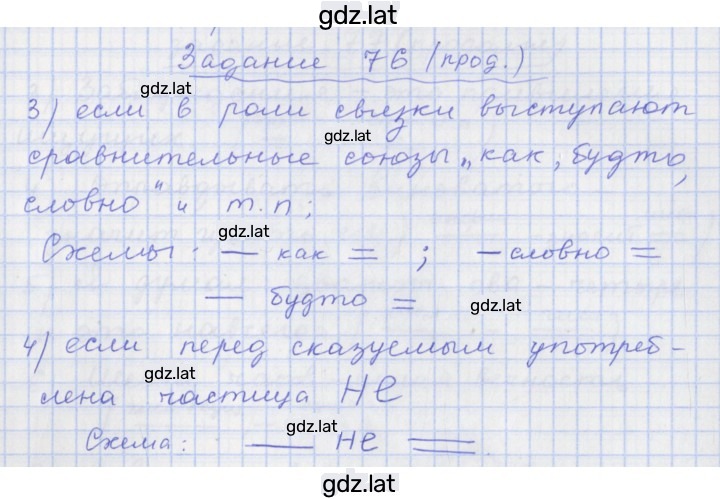 gdz.lat
Задание 76 (прод.)
gdz.lat
3) если в роли связки выступают
gdz.lat
сравнительные союзы „как, будто,
словно" и т.п;
gdz.lat
Схемы: — как = ; — словно =
— будто =
gdz.lat
4) если перед сказуемым употреб-
gdz.lat
лена частица НЕ
gdz.lat
Схема: — НЕ =.
gdz.lat